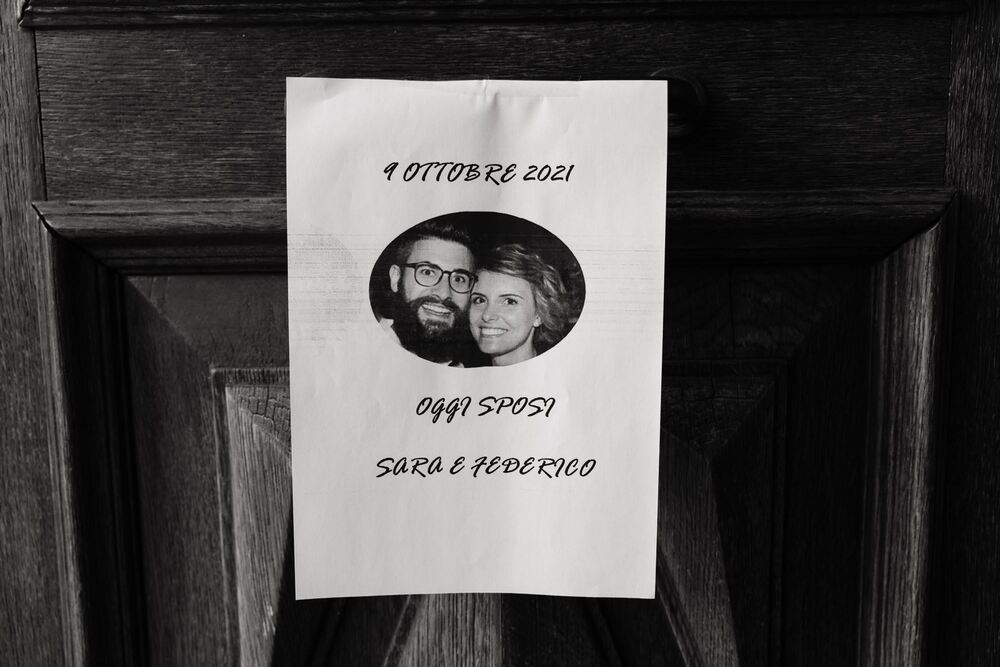 9 OTTOBRE 2021
OGGI SPOSI
SARA E FEDERICO